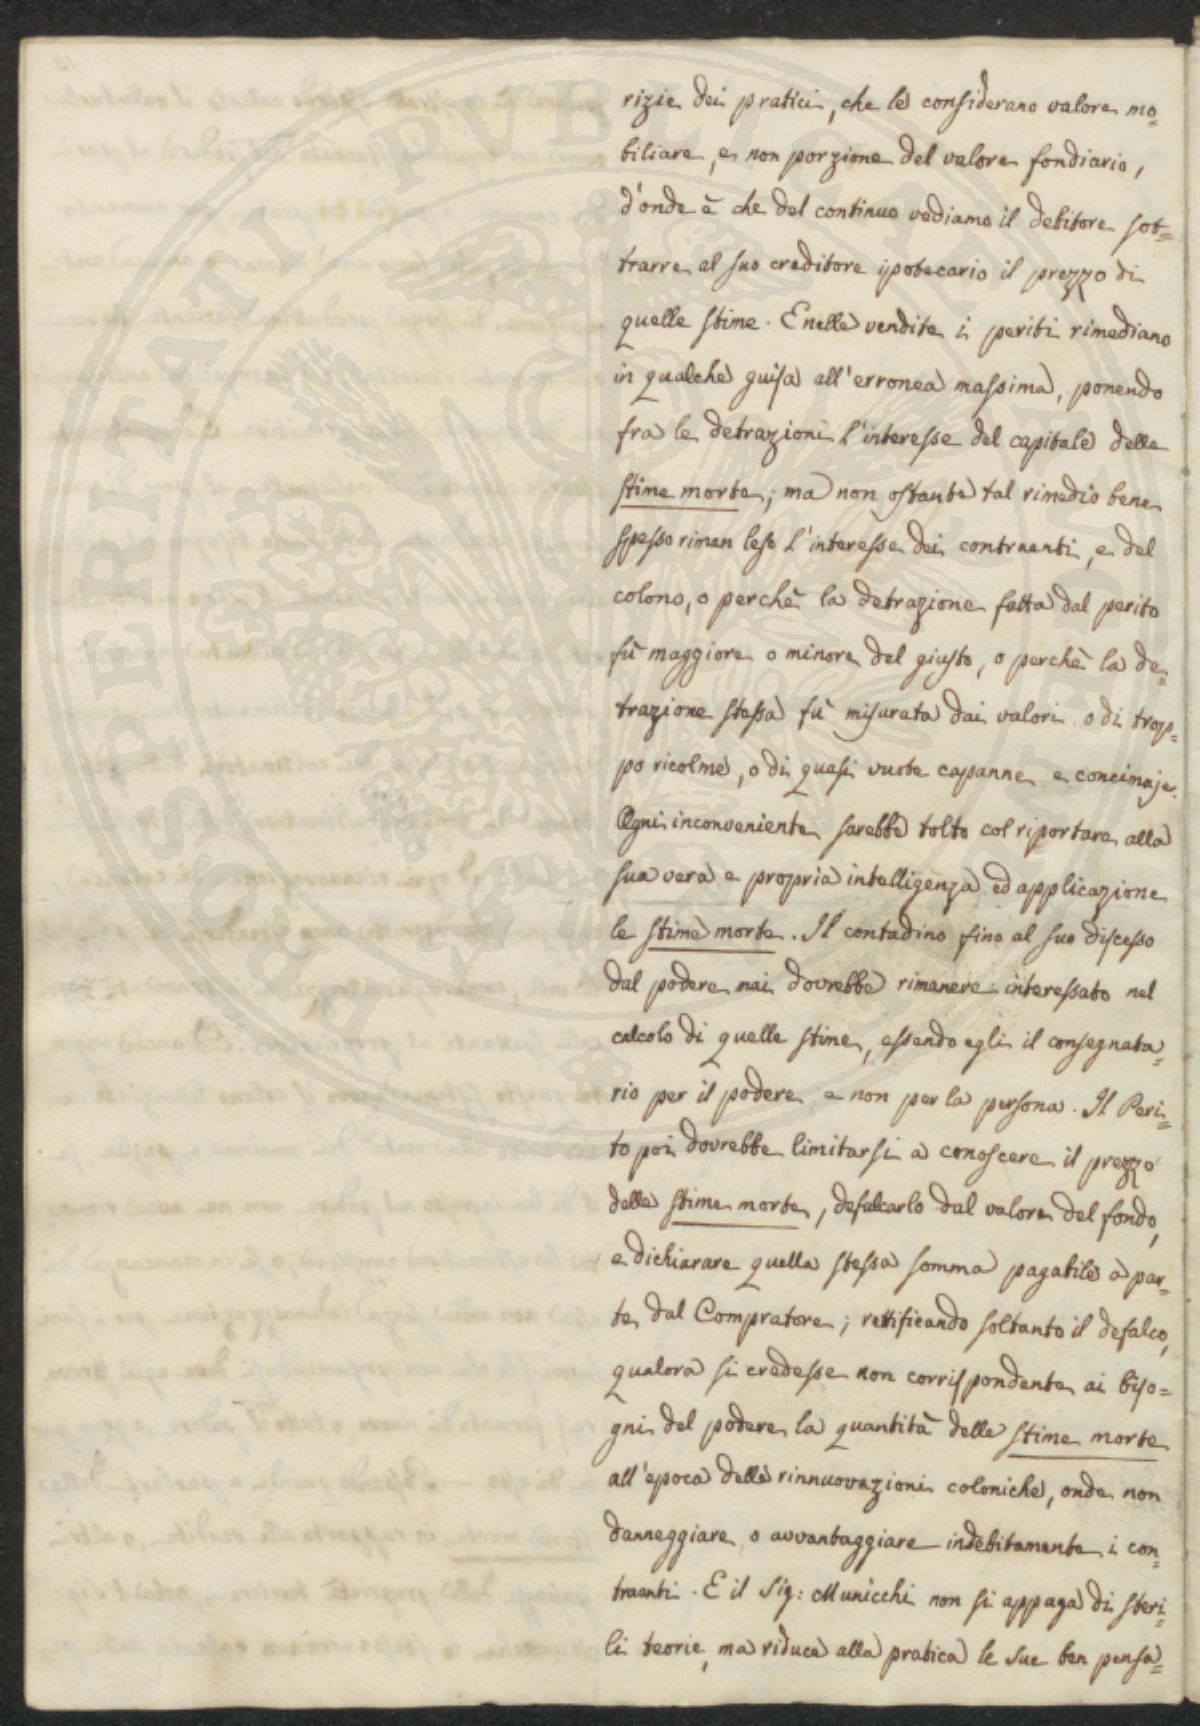 rizie dei pratici, che le considerano valore mo=
biliare, e non porzione del valore fondiario,
d'onde è che del continuo vediamo il debitore sot=
trarre al suo creditore ipotecario il prezzo di
quelle stime. E nelle vendite i periti rimediano
in qualche guisa all'erronea massima, ponendo
fra le detrazioni l'interesse del capitale delle
stime morte; ma non ostante tal rimedio bene
spesso riman leso l'interesse dei contraenti, e del
colono, o perchè la detrazione fatta dal perito
fù maggiore o minore del giusto, o perchè la de=
trazione stessa fù misurata dai valori o di trop=
po ricolme, o di quasi vuote capanne e concimaje.
Ogni inconveniente sarebbe tolto col riportare alla
sua vera e propria intelligenza ed applicazione
le stime morte. Il contadino fino al suo discesso
dal podere mai dovrebbe rimanere interessato nel
calcolo di quelle stime, essendo egli il consegnata=
rio per il podere e non per la persona. Il Peri=
to poi dovrebbe limitarsi a conoscere il prezzo
delle stime morte, defalcarlo dal valore del fondo,
e dichiarare quella stessa somma pagabile a par=
te dal Compratore; rettificando soltanto il defalco,
qualora si credesse non corrispondente ai biso=
gni del podere la quantità delle stime morte
all'epoca delle rinnuovazioni coloniche, onde non
danneggiare o avvantaggiare indebitamente i con=
traenti. E il Sig: Municchi non si appaga di steri=
li teorie, ma riduce alla pratica le sue ben pensa=